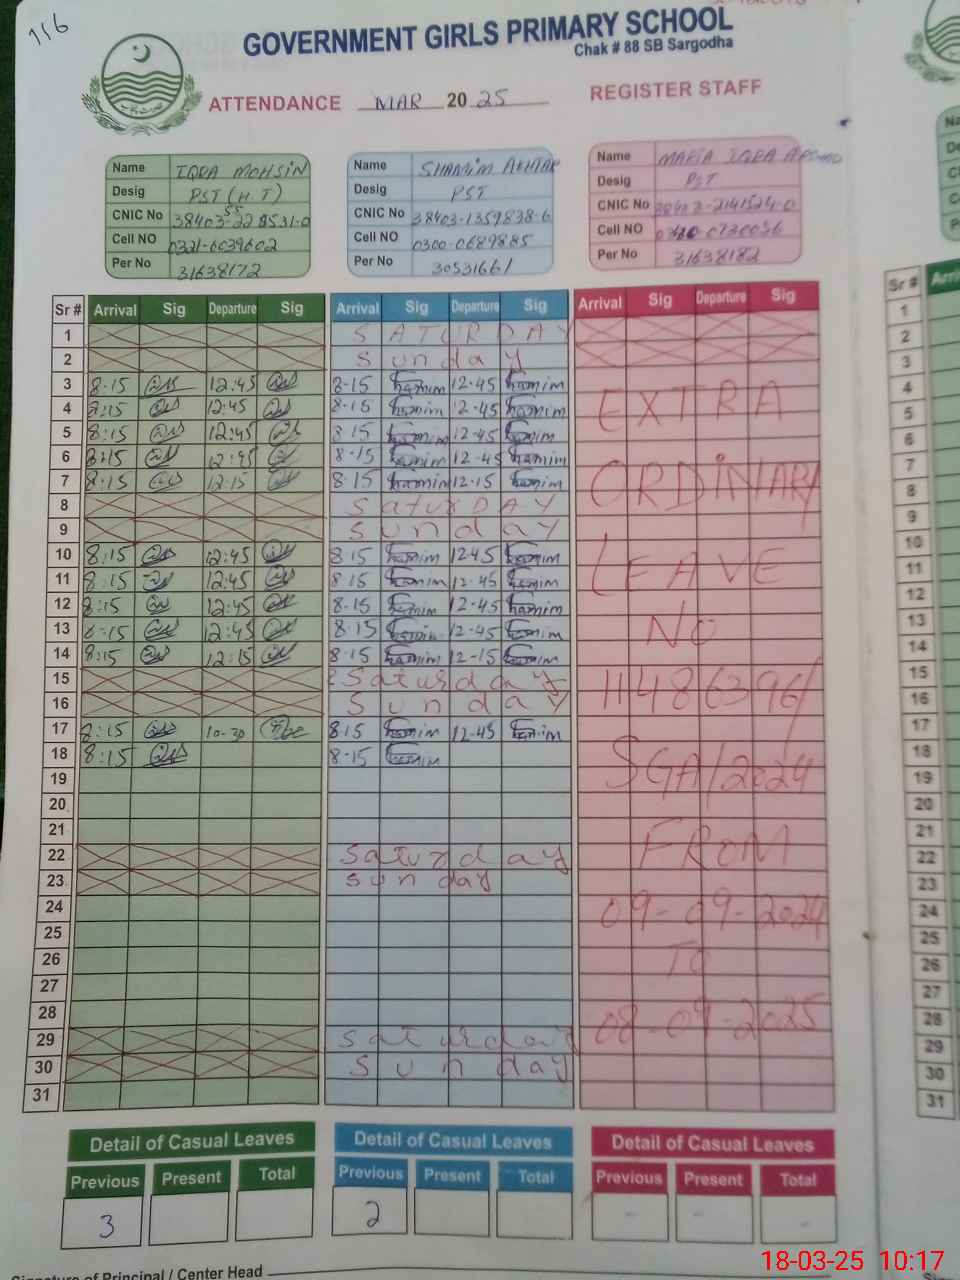 116
GOVERNMENT GIRLS PRIMARY SCHOOL
Chak # 88 SB Sargodha
ATTENDANCE MAR 2025 REGISTER STAFF
Name IQRA MOHSIN
Desig PST (H.T)
CNIC No
Cell NO 0321-6039602
Per No 31638172
Name SHAMIM AKHTAR
Desig PST
CNIC No 38403-1359838-6
Cell NO 0300-0689885
Per No 30531661
Name MARIA IQRA
Desig PST
CNIC No 38403-2141524-0
Cell NO
Per No 31638182
Sr # Arrival Sig Departure Sig Arrival Sig Departure Sig Arrival Sig Departure Sig
1 SATURDAY
2 Sunday
3 8-15 12:45 8-15 Shamim 12-45 Shamim
4 8:15 12:45 8-15 Shamim 12-45 Shamim EXTRA
5 8:15 12:45 8-15 Shamim 12-45 Shamim
6 8:15 12:45 8-15 Shamim 12-45 Shamim
7 8:15 12:15 8-15 Shamim 12-15 Shamim ORDINARY
8 SaturDAY
9 sunday
10 8:15 12:45 8-15 Shamim 12-45 Shamim
11 8:15 12:45 8-15 Shamim 12-45 Shamim LEAVE
12 8:15 12:45 8-15 Shamim 12-45 Shamim
13 8:15 12:45 8-15 Shamim 12-45 Shamim NO
14 8:15 12:15 8-15 Shamim 12-15 Shamim
15 Saturday 11486396/
16 Sunday
17 8:15 10-30 8-15 Shamim 12-45 Shamim
18 8:15 8-15 Shamim SGA/2024
19
20
21
22 saturday FROM
23 sunday
24 09-09-2024
25
26 TO
27
28 08-09-2025
29 saturday
30 sunday
31
Detail of Casual Leaves Detail of Casual Leaves Detail of Casual Leaves
Previous Present Total Previous Present Total Previous Present Total
3 2 - - -
Signature of Principal / Center Head
18-03-25 10:17
Sr #
1
2
3
4
5
6
7
8
9
10
11
12
13
14
15
16
17
18
19
20
21
22
23
24
25
26
27
28
29
30
31